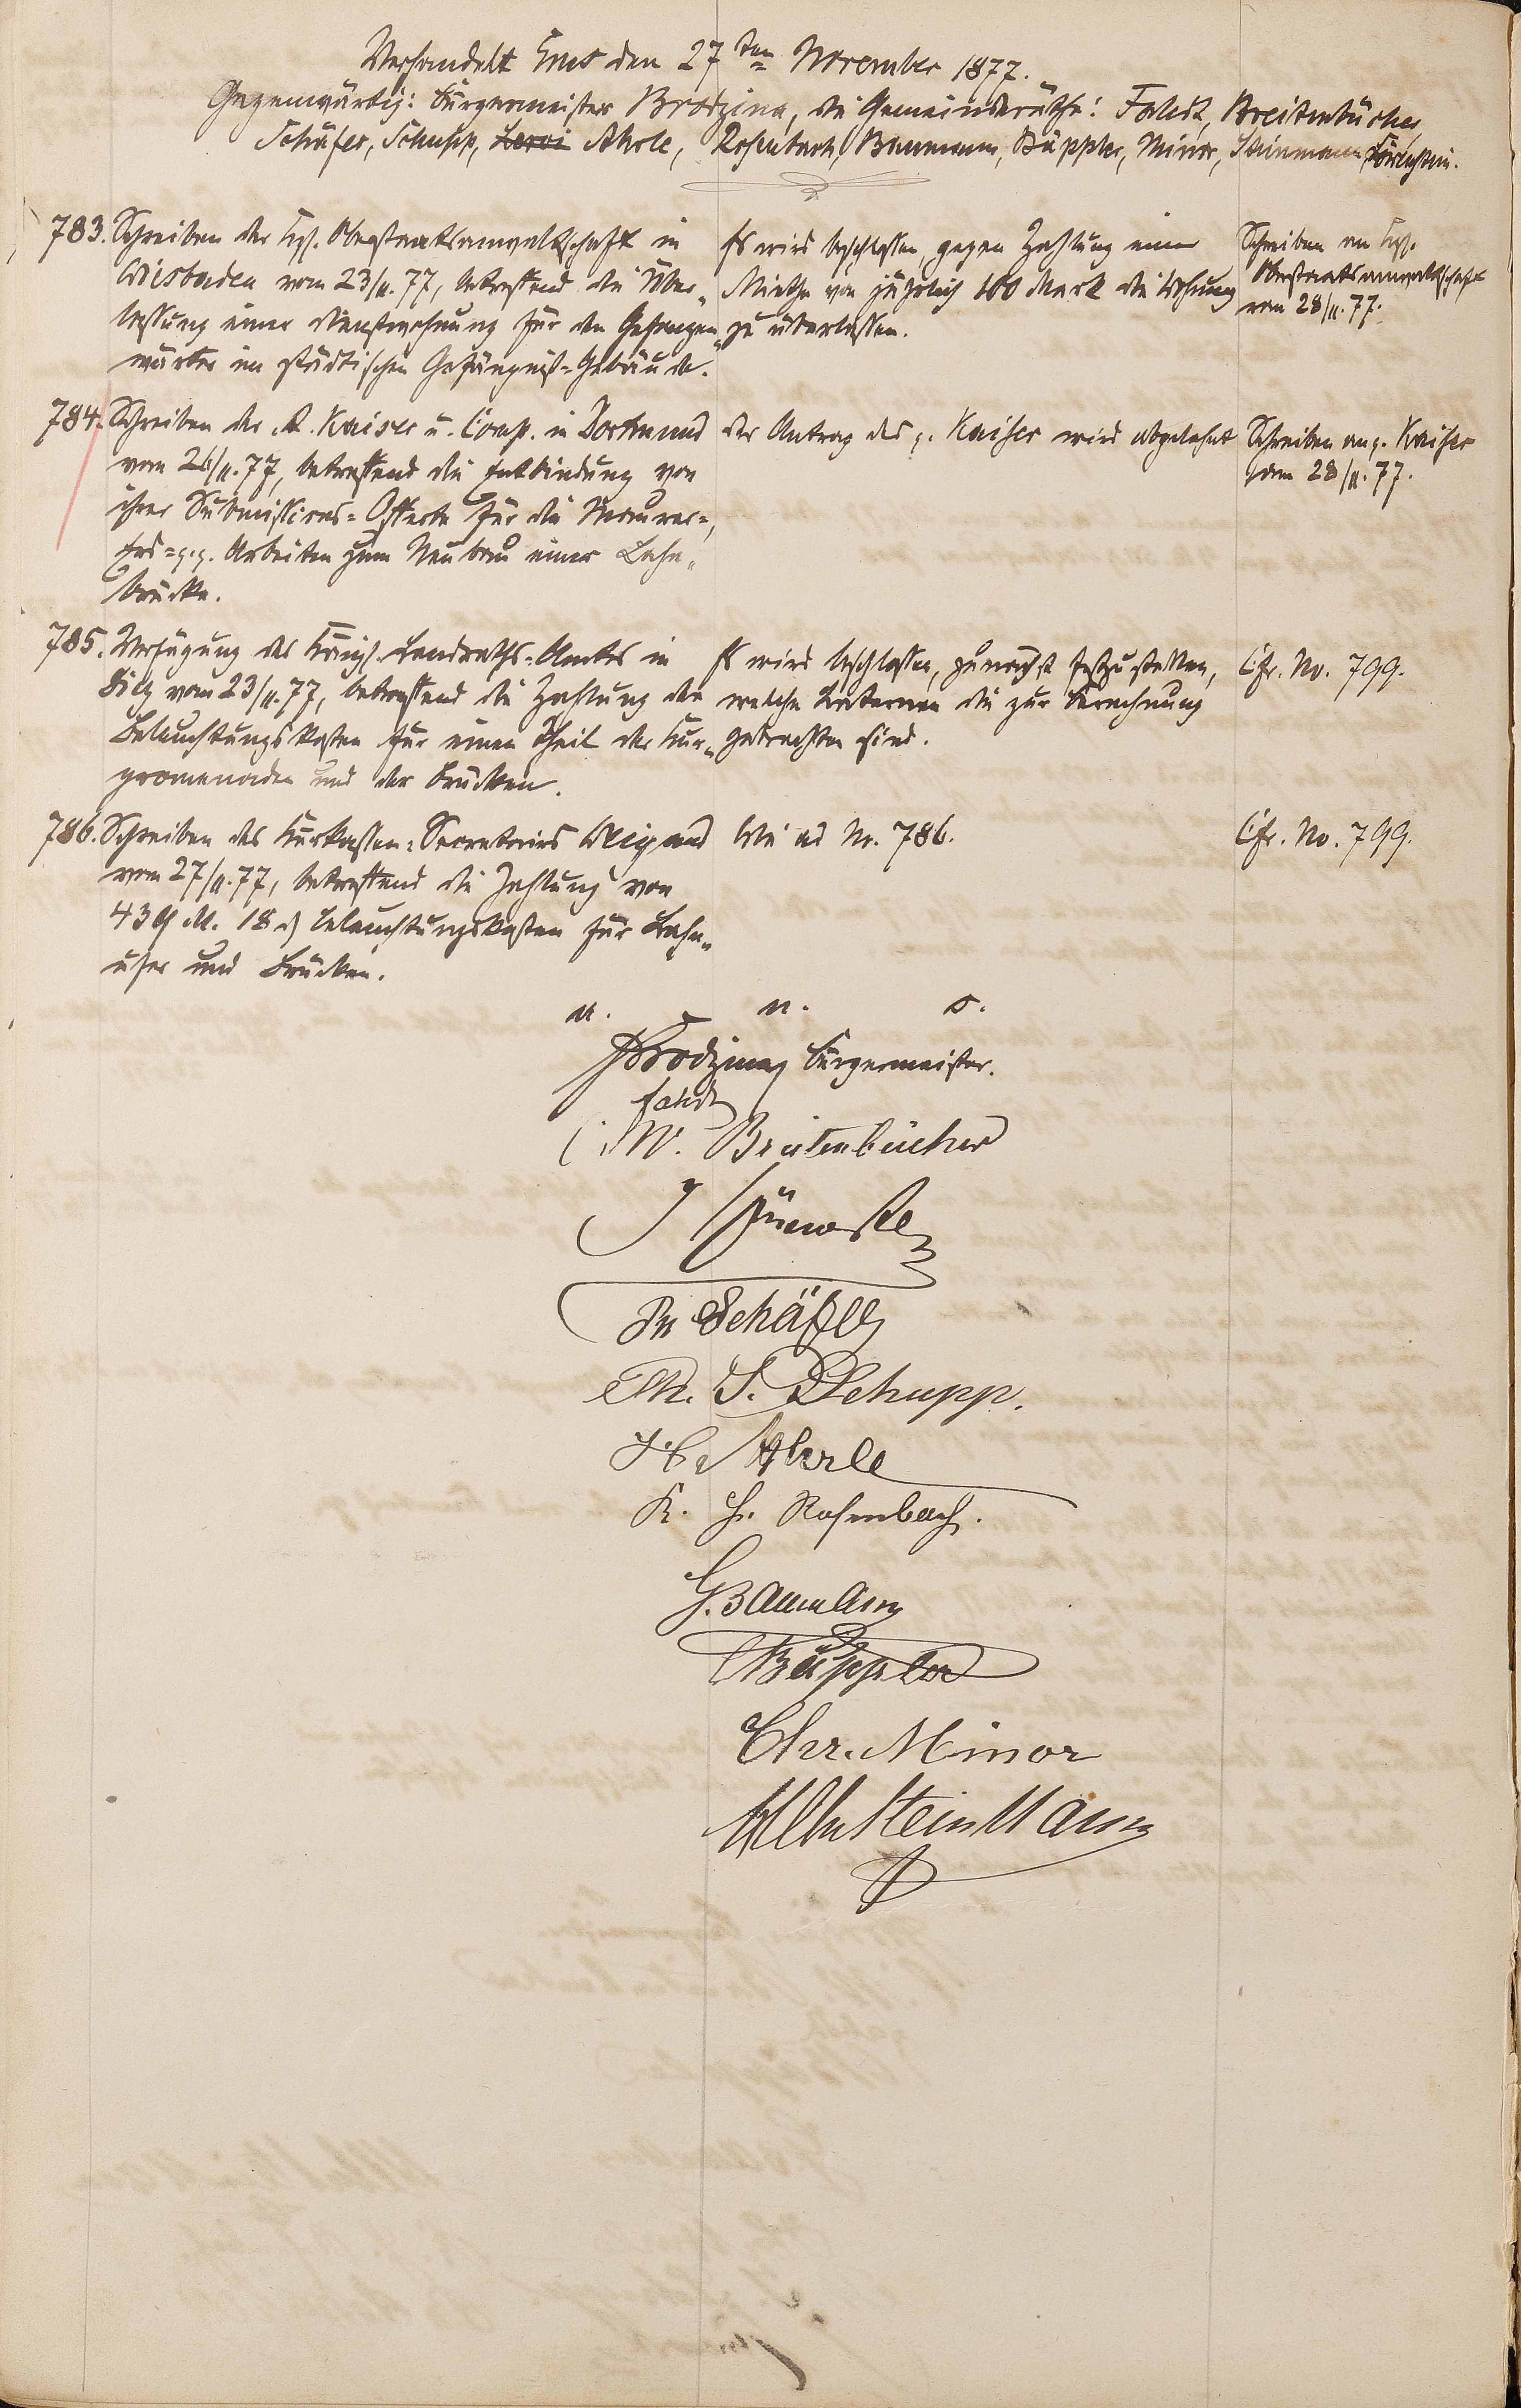 Verhandelt Ems den 27ten November 1877.
Gegenwärtig: Bürgermeister Brodzina, die Gemeinderäthe: Faludt, Breitenbücher,
Schäfer, Schupp, Leroi Ahrle, Rosenbach, Baumann, Büppler, Minor, Steinmann
783. Schreiben der Kgl. Oberstaatsanwaltschaft in
Wiesbaden vom 23/11.77, betreffend die Über-
lassung einer Dienstwohnung für den Gefangen-
wärter im städtischen Gefängniß-Gebäude.
Es wird beschlossen, gegen Zahlung einer
Miethe von jährlich 100 Mark die Wohnung
zu überlassen.
Schreiben an Kgl.
Oberstaatsanwaltschaft
vom 28/11.77.
784. Schreiben der A. Kaiser u. Comp. in Dortmund
vom 26/11.77, betreffend die Entbindung von
ihrer Submissions-Offerte für die Maurer-,
Erd- p.p. Arbeiten zum Neubau einer Lahn-
brücke.
Der Antrag des p. Kaiser wird abgelehnt
Schreiben an p. Kaiser
vom 28/11.77.
785. Verfügung des Königl. Landraths-Amtes in
Diez vom 23/11.77, betreffend die Zahlung der
Beleuchtungskosten für einen Theil der Kur-
promenaden und der Brücken.
Es wird beschlossen, zunächst festzustellen,
welche Laternen die zur Berechnung
gebrachten sind.
Cfr. No. 799.
786. Schreiben des Kurkassen-Secretairs Weigand
vom 27/11.77, betreffend die Zahlung von
439 M. 18 ₰ Beleuchtungskosten für Lahn-
ufer und Brücken.
Wie ad No. 786.
Cfr. No. 799.
a. n. s.
Brodzina Bürgermeister.
W. Breitenbücher
Schäfer
Ph. J. Schupp.
H. Ahrle
K. H. Rosenbach.
G. Baumann
Büppler
Chr. Minor
Wilh Steinmann